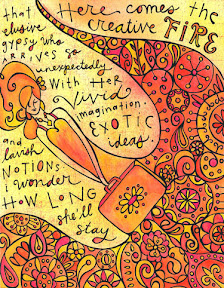 Here comes the
creative FIRE
that
elusive
gypsy who
ARRIVES so
unexpectedly
With HER
Vivid
imagination
EXOTIC
ideas
and
lavish
NOTIONS
wonder
HOW LONG
she'll
stay